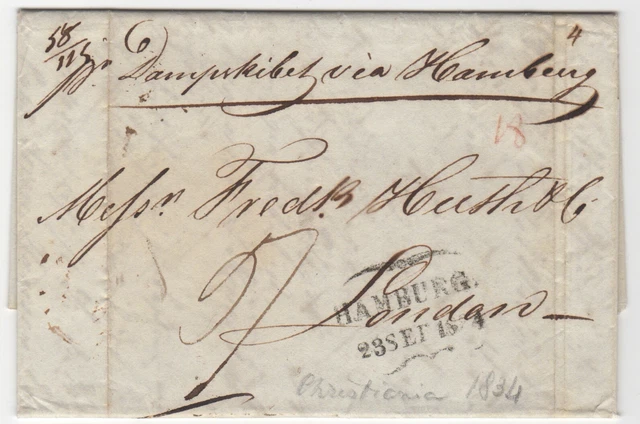 58
115
4
pr Dampskibet via Hamburg
18
Messrs Fredk Huth & Co
London
HAMBURG.
23 SEP 1834
Christiania 1834